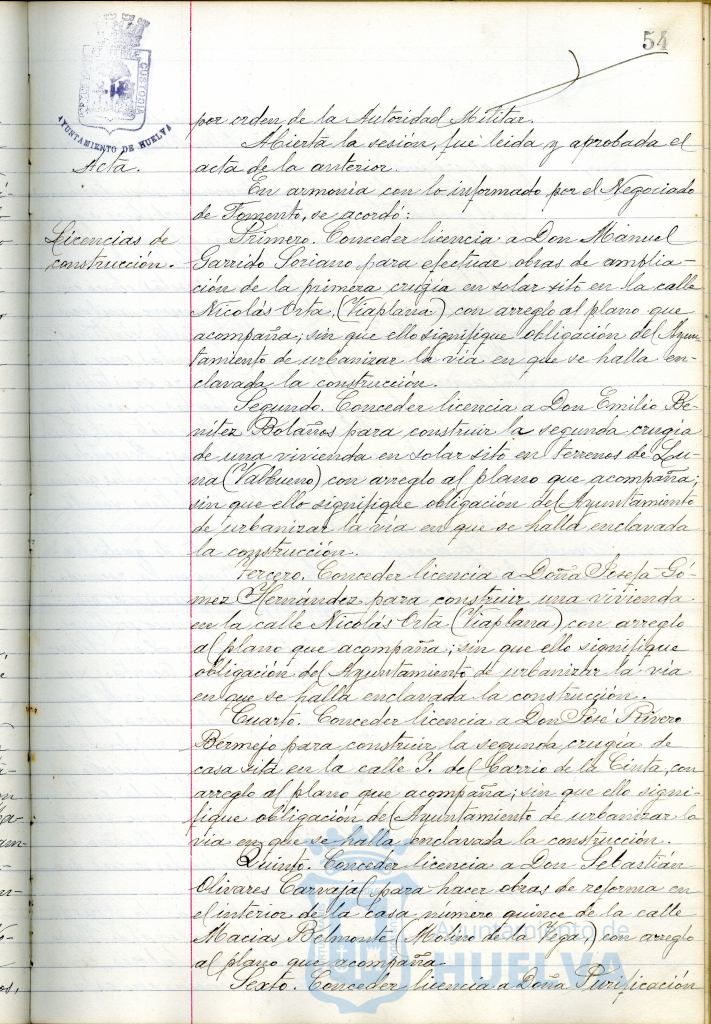 54
CUSTODIA
AYUNTAMIENTO DE HUELVA
por orden de la Autoridad Militar.
Abierta la sesión, fué leida y aprobada el
Acta.
acta de la anterior.
En armonía con lo informado por el Negociado
de Fomento, se acordó:
Licencias de
construcción.
Primero. Conceder licencia a Don Manuel
Garrido Soriano para efectuar obras de amplia-
ción de la primera crugía en solar sito en la calle
Nicolás Orta, (Viaplana) con arreglo al plano que
acompaña; sin que ello signifique obligación del Ayun-
tamiento de urbanizar la vía en que se halla en-
clavada la construcción.
Segundo. Conceder licencia a Don Emilio Be-
nítez Bolaños para construir la segunda crugía
de una vivienda en solar sito en terrenos de Lu-
na (Valbueno) con arreglo al plano que acompaña;
sin que ello signifique obligación del Ayuntamiento
de urbanizar la vía en que se halla enclavada
la construcción.
Tercero. Conceder licencia a Doña Josefa Gó-
mez Hernández para construir una vivienda
en la calle Nicolás Orta (Viaplana) con arreglo
al plano que acompaña; sin que ello signifique
obligación del Ayuntamiento de urbanizar la vía
en que se halla enclavada la construcción.
Cuarto. Conceder licencia a Don José Rivero
Bermejo para construir la segunda crugía de
casa sita en la calle Y. del Barrio de la Cinta, con
arreglo al plano que acompaña; sin que ello signi-
fique obligación del Ayuntamiento de urbanizar la
vía en que se halla enclavada la construcción.
Quinto. Conceder licencia a Don Sebastián
Olivares Carvajal para hacer obras de reforma en
el interior de la casa número quince de la calle
Macías Belmonte (Molino de la Vega,) con arreglo
al plano que acompaña.
Sexto. Conceder licencia a Doña Purificación
Ayuntamiento de
HUELVA